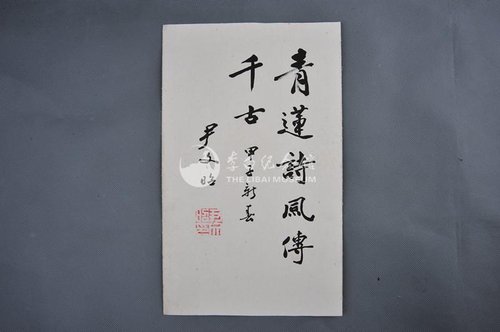 青蓮詩風傳
千古
甲子新春
尹文昭
李白纪念馆
THE LIBAI MUSEUM